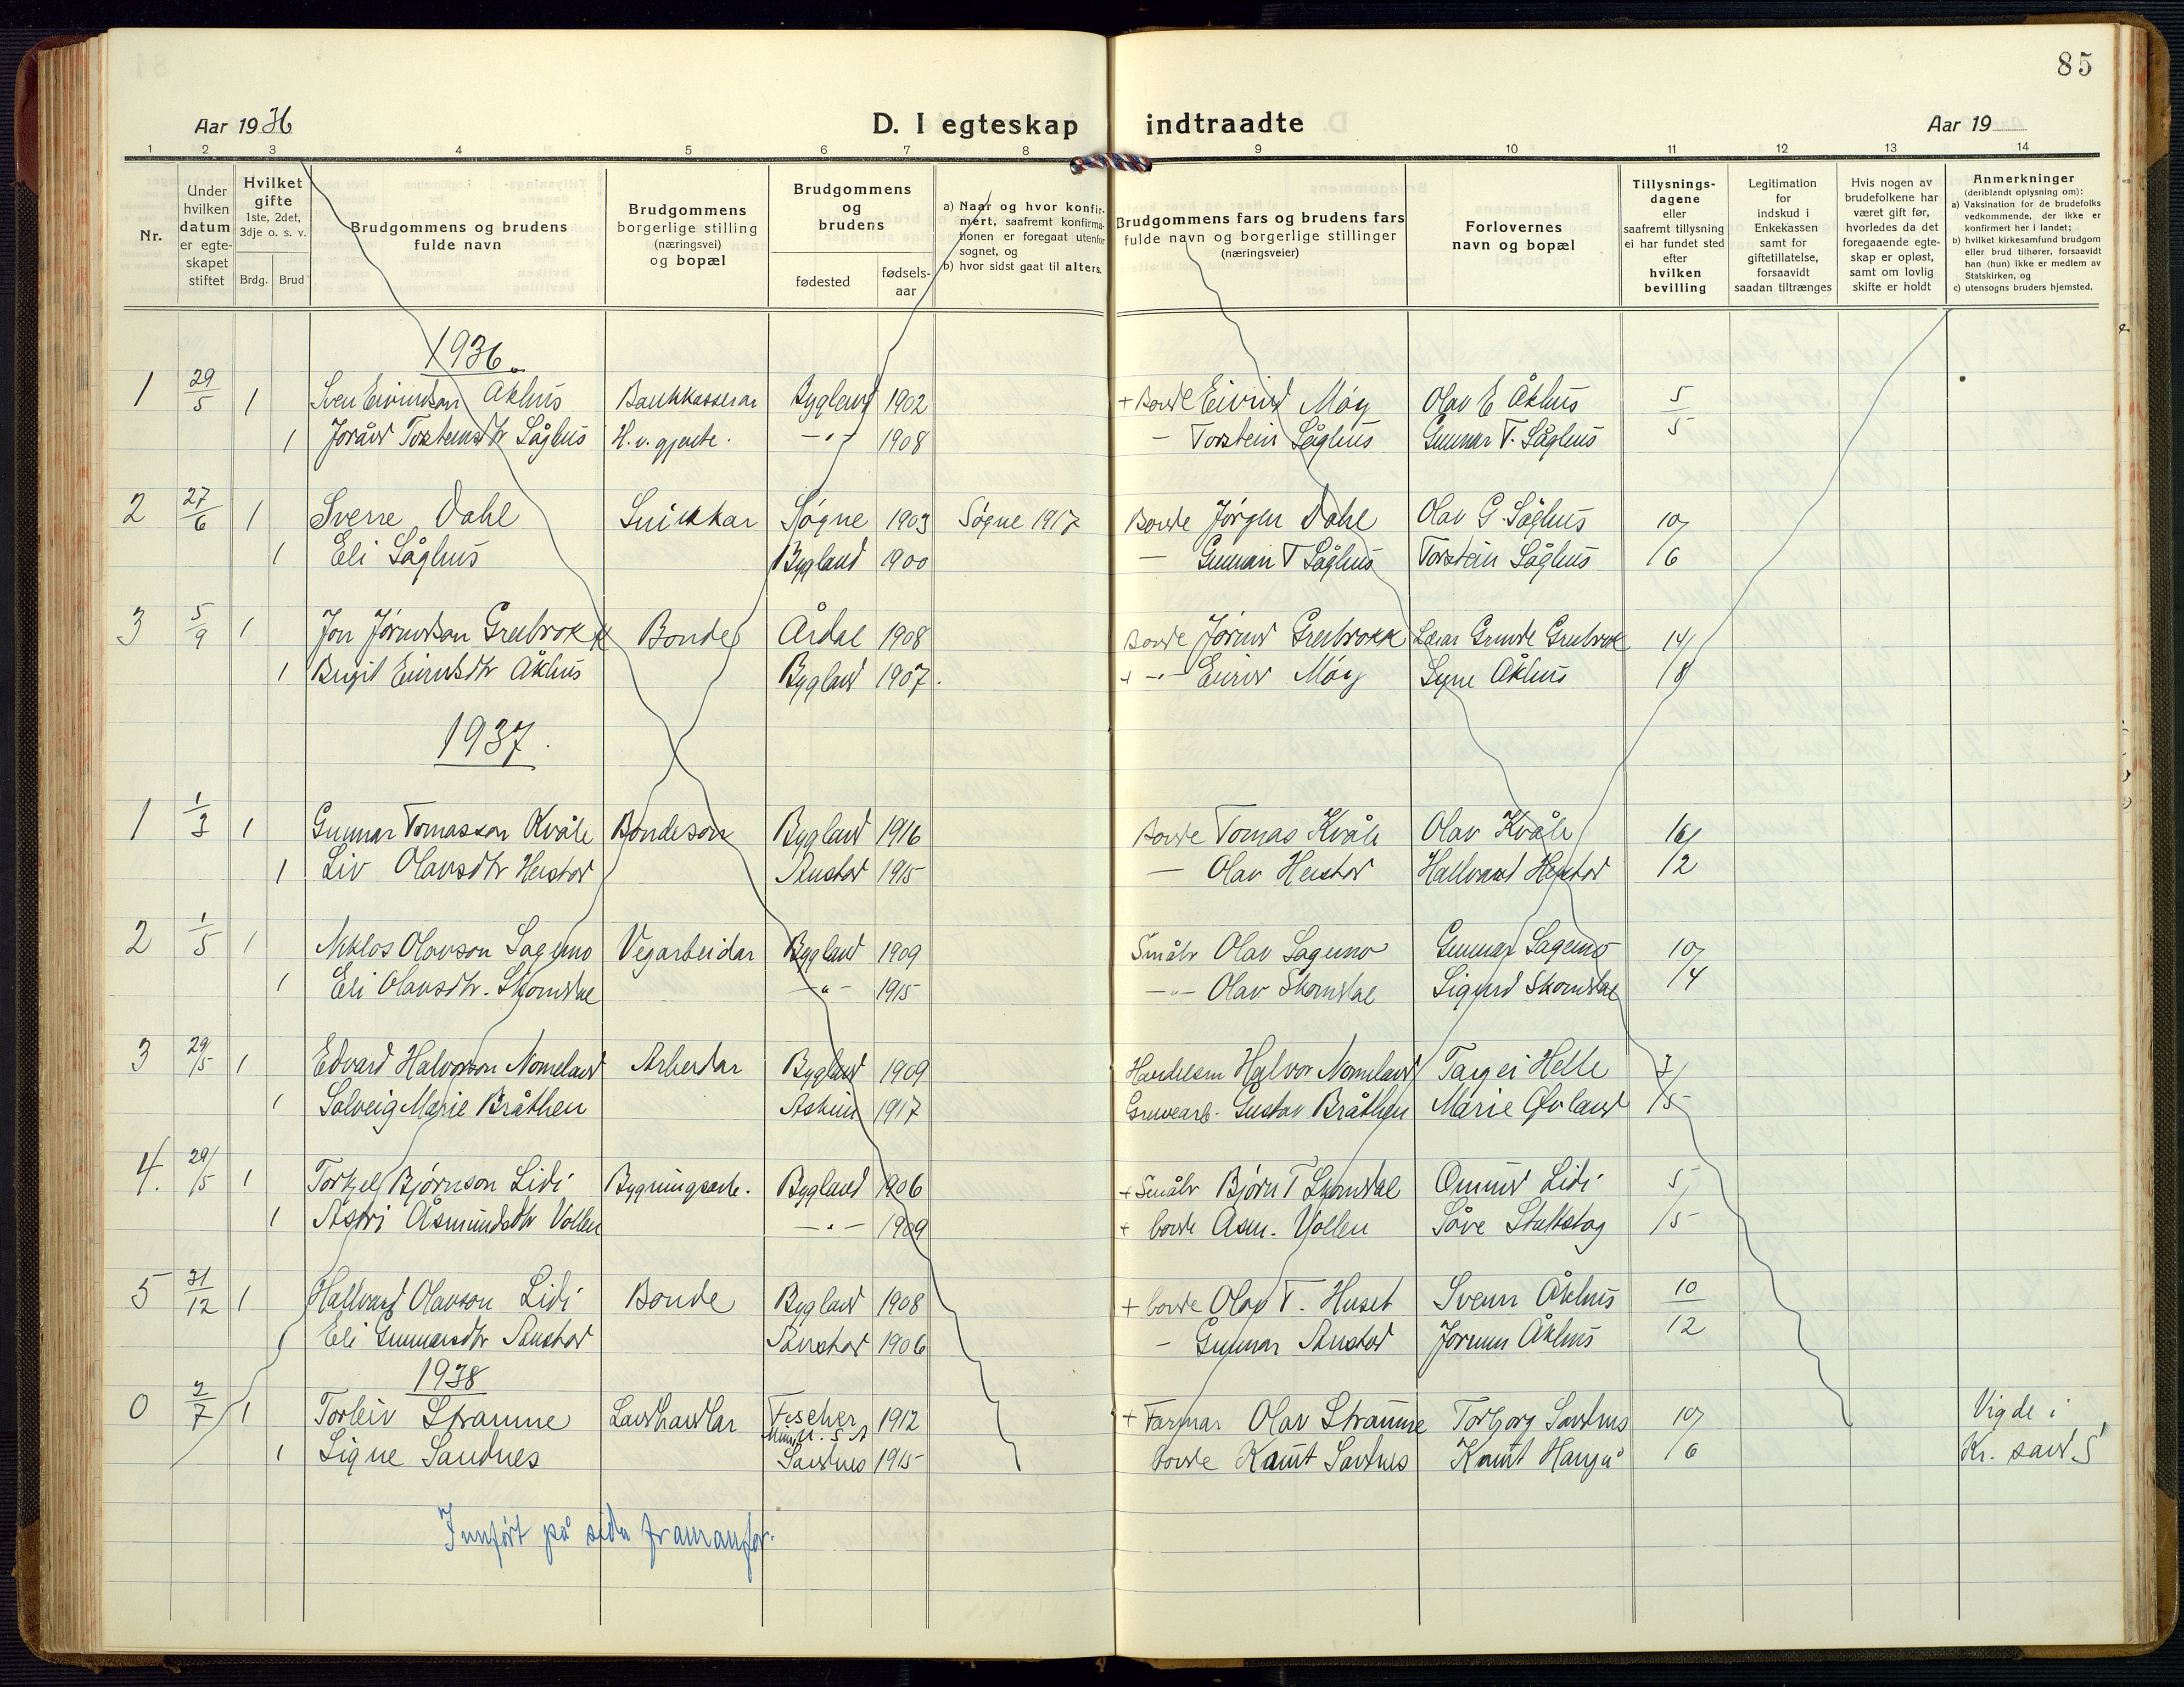 85
Aar 1936 D. I egteskap indtraadte Aar 19
1 2 3 4 5 6 7 8 9 10 11 12 13 14
Nr.
Under hvilken datum er egteskapet stiftet
Hvilket gifte 1ste, 2det, 3dje o. s. v.
Brdg. Brud
Brudgommens og brudens fulde navn
Brudgommens borgerlige stilling (næringsvei) og bopæl
Brudgommens og brudens
fødested fødsels-aar
a) Naar og hvor konfirmert, saafremt konfirmationen er foregaat utenfor sognet, og
b) hvor sidst gaat til alters.
Brudgommens fars og brudens fars fulde navn og borgerlige stillinger (næringsveier)
Forlovernes navn og bopæl
Tillysningsdagene eller saafremt tillysning ei har fundet sted efter hvilken bevilling
Legitimation for indskud i Enkekassen samt for giftetillatelse, forsaavidt saadan tiltrænges
Hvis nogen av brudefolkene har været gift før, hvorledes da det foregaaende egteskap er opløst, samt om lovlig skifte er holdt
Anmerkninger (deriblandt oplysning om):
a) Vaksination for de brudefolks vedkommende, der ikke er konfirmert her i landet;
b) hvilket kirkesamfund brudgom eller brud tilhører, forsaavidt han (hun) ikke er medlem av Statskirken, og
c) utensogns bruders hjemsted.
1936
1 29/5 1 Sven Eivindson Åkhus Bankkasserar Bygland 1902 + Bonde Eivind Møy Olav E Åkhus 5/5
1 Joråvd Torsteinsdtr Såghus H.v. gjente. -"- 1908 - Torstein Såghus Gunnar T. Såghus
2 27/6 1 Sverre Dahl Snikkar Søgne 1903 Søgne 1917 Bonde Jørgen Dahl Olav G. Såghus 10/6
1 Eli Såghus Bygland 1900 - Gunnar T Såghus Torstein Såghus
3 5/9 1 Jon Jørundson Greibrokk Bonde Årdal 1908 Bonde Jørund Greibrokk Grunde Greibrok 14/8
1 Birgit Eivindsdtr Åkhus Bygland 1907. + -"- Eivind Møy Syne Åkhus
1937.
1 1/3 1 Gunnar Tomasson Kvåle Bondeson Bygland 1916 Bonde Tomas Kvåle Olav Kvåle 16/2
1 Liv Olavsdtr Heistad Austad 1915 - Olav Heistad Hallvard Heistad
2 1/5 1 Niklos Olavson Sagemo Vegarbeidar Bygland 1909 Småbr Olav Sagemo Gunnar Sagemo 10/4
1 Eli Olavsdtr. Skomdal -"- 1915 -"- Olav Skomdal Sigurd Skomdal
3 29/5 1 Edvard Halvorson Nomeland Arbeidar Bygland 1909 Handelsm Halvor Nomeland Targei Helle 3/5
1 Solveig Marie Bråthen Askim 1917 Gruvearb. Gustav Bråthen Marie Øvland
4. 29/5 1 Torkjel Bjørnson Lidi Bygningsarb. Bygland 1906 + Småbr Bjørn T Skomdal Omund Lidi 5/5
1 Åstri Åsmundsdtr Vollen -"- 1909 + bonde Åsm. Vollen Såve Stallslog
5 31/12 1 Hallvard Olavson Lidi Bonde Bygland 1908 + bonde Olav T. Huset Svenn Åkhus 10/12
1 Eli Gunnarsdtr Austad Austad 1906 - Gunnar Austad Jorunn Åkhus
1938
0 2/7 1 Torleiv Straume Landhandlar Fischer Minn. U.S.A 1912 + Farmar Olav Straume Torborg Sandnes 10/6 Vigde i
1 Signe Sandnes Sandnes 1915 bonde Knut Sandnes Knut Haugå Kr. sand S
Innført på sida framanfor.